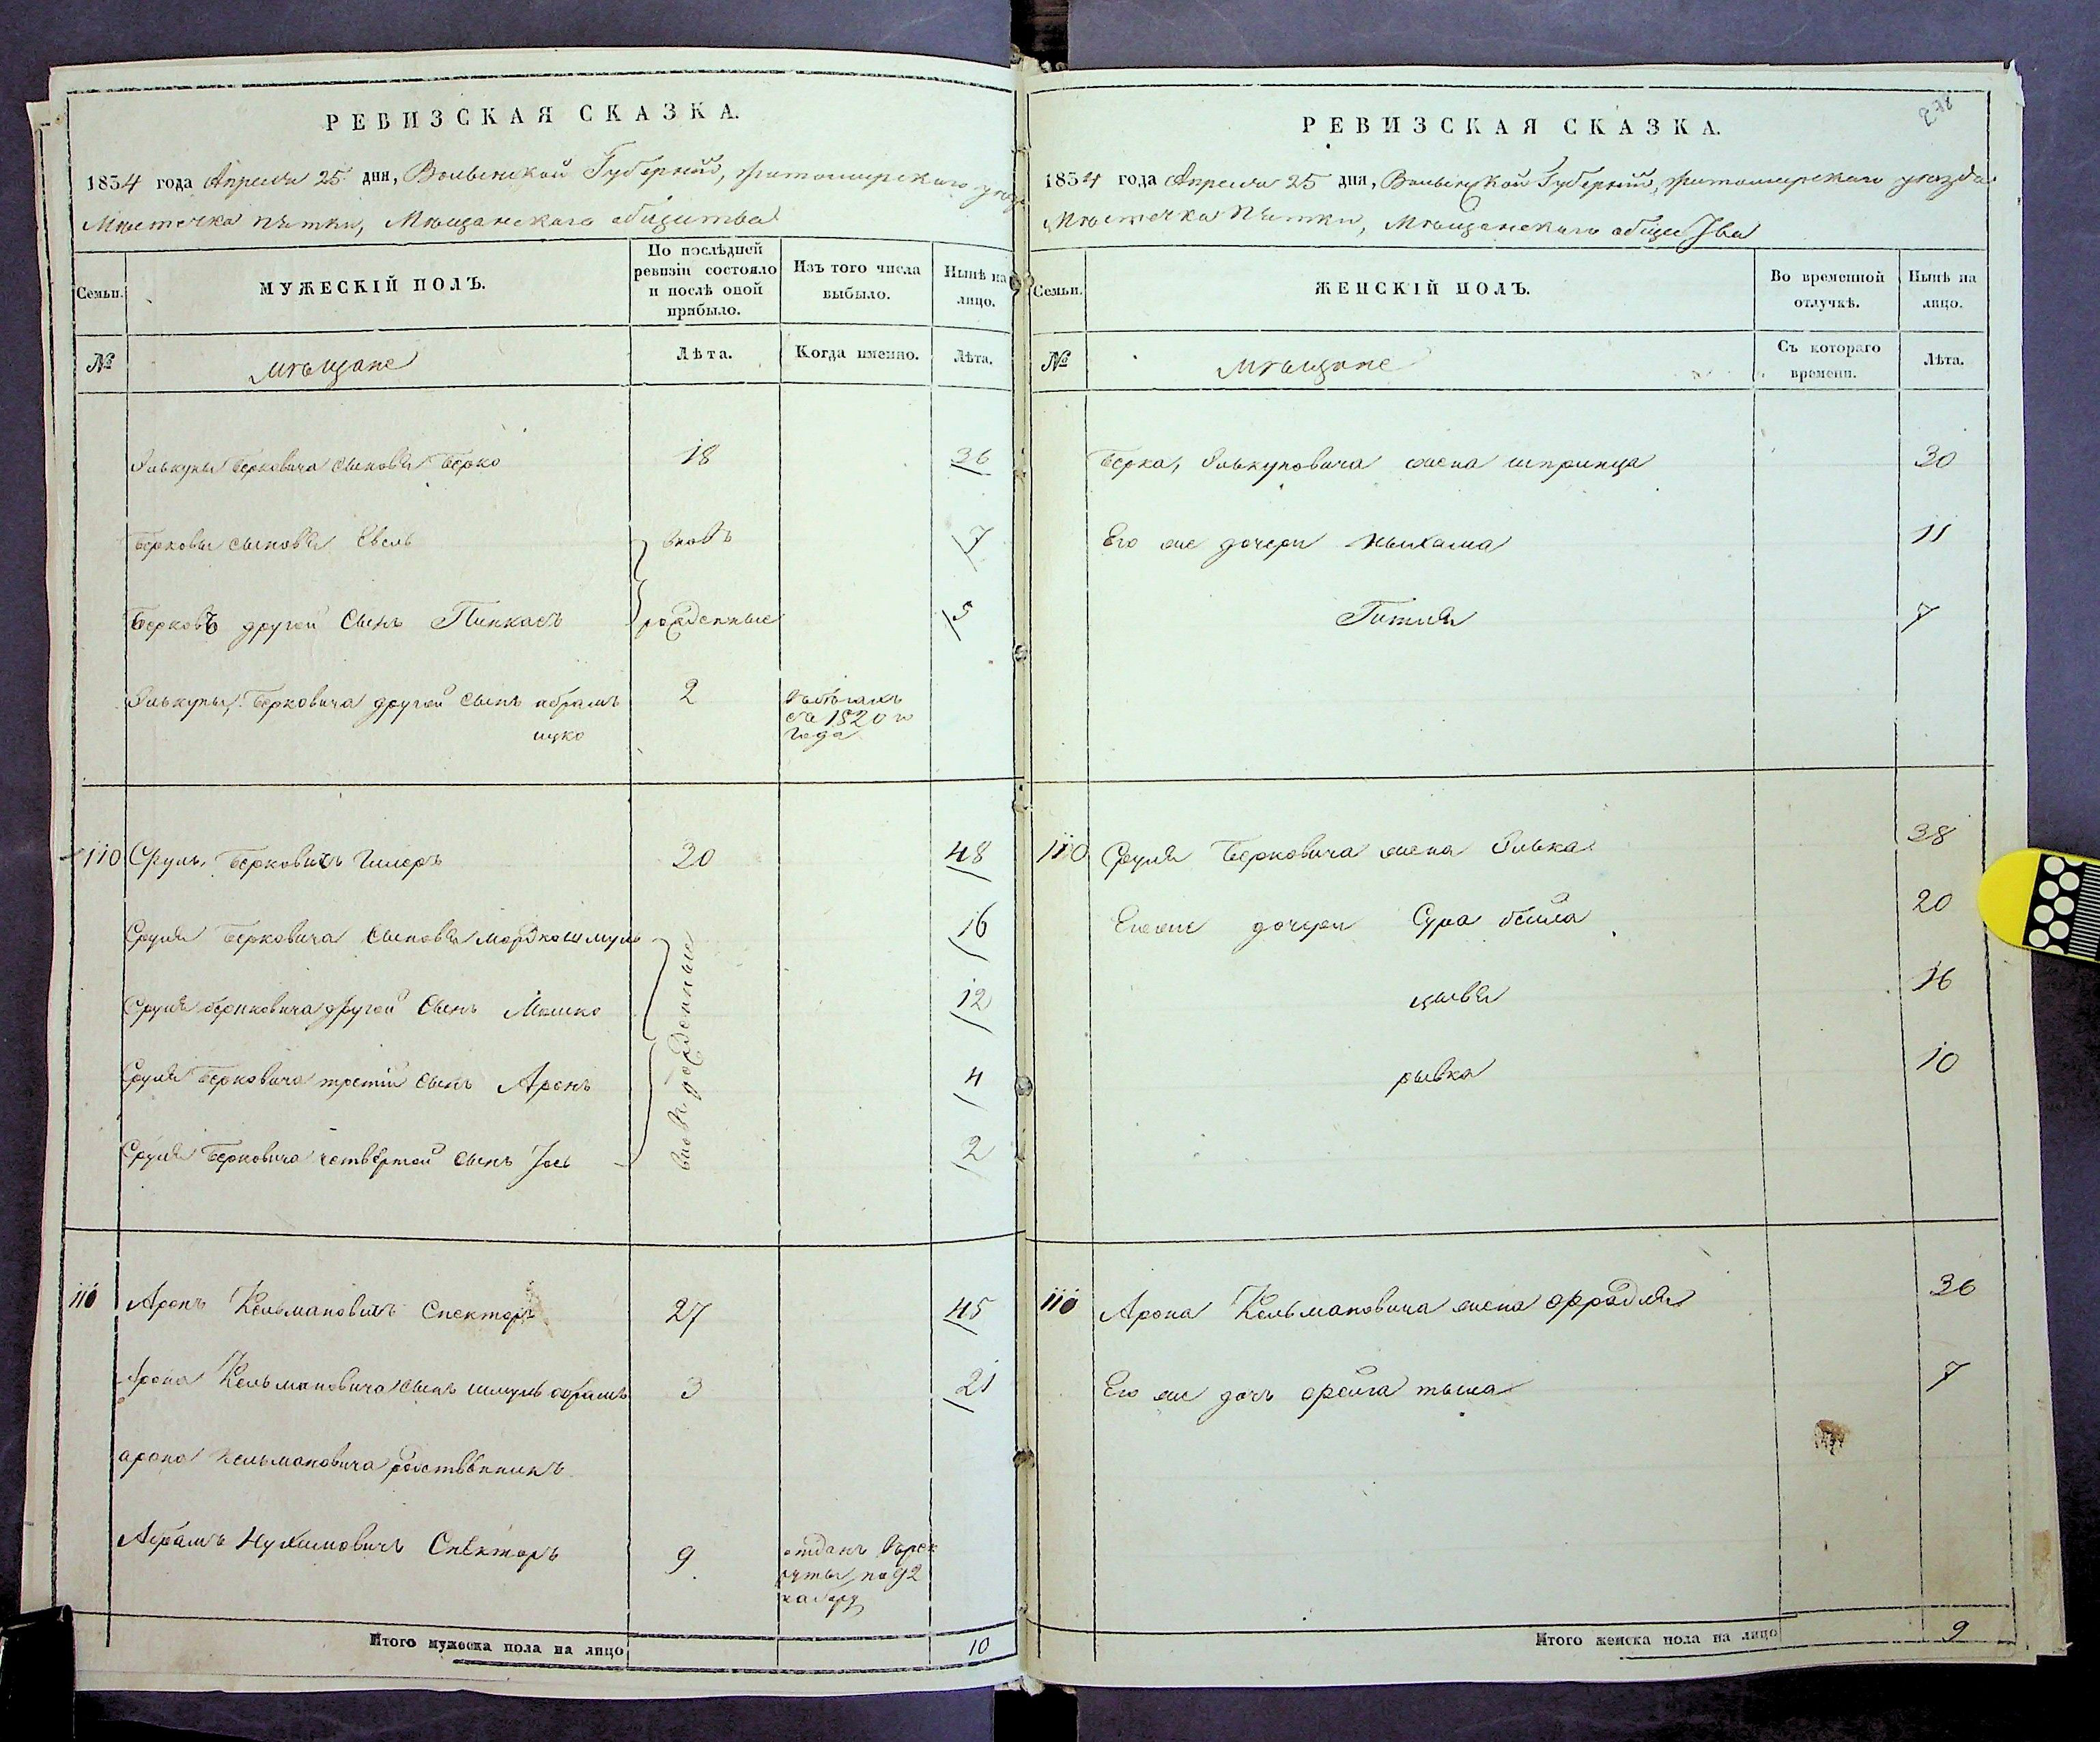 РЕВИЗСКАЯ СКАЗКА.
1834 года Апреля 25 дня, Волынской Губерніи, житомирскаго уезда
Мѣстечка пятки, Мѣщанскаго общества
Семьи.
МУЖЕСКІЙ ПОЛЪ.
По послѣдней ревизіи состояло и послѣ оной прибыло.
Изъ того числа выбыло.
Нынѣ на лицо.
№
мѣщане
Лѣта.
Когда именно.
Лѣта.
Элькуны Берковича сыновья Берко 18 36
Берковы сыновья Евель вновь 7
Берковъ другой Сынъ Пинкасъ рожденные 5
Элькуны, Берковича другой сынъ абрамъ 2
ицко
съ 1820го
года
110 Сруль Берковичъ 20 48
Сруля Берковича сыновья мордко шмуль 16
Сруля берковича другой Сынъ Мошко 12
Сруля Берковича третій сынъ Аронъ 4
Сруля Берковича четвертой сынъ Іось 2
вновь рожденные
110 Аронъ Кельмановичъ Спекторъ 27 45
Арона Кельмановича сынъ шмуль абрамъ 3 21
арона Кельмановича родственникъ
Абрамъ Нухимовичъ Спекторъ 9
отданъ
Итого мужеска пола на лицо 10
278
РЕВИЗСКАЯ СКАЗКА.
1834 года Апреля 25 дня, Волынской Губерніи, житомирскаго уезда
Мѣстечка пятки, Мѣщанскаго общества
Семьи.
ЖЕНСКІЙ ПОЛЪ.
Во временной отлучкѣ.
Нынѣ на лицо.
№
мѣщане
Съ котораго времени.
Лѣта.
Берка, Элькуновича жена шпринца 30
Его же дочери Ныхама 11
Гитля 7
110 Сруля Берковича жена Элька 38
Его же дочери Сура бейла 20
цывья 16
рывка 10
110 Арона Кельмановича жена фрадля 36
Его же дочь фейга тыша 7
Итого женска пола на лицо 9